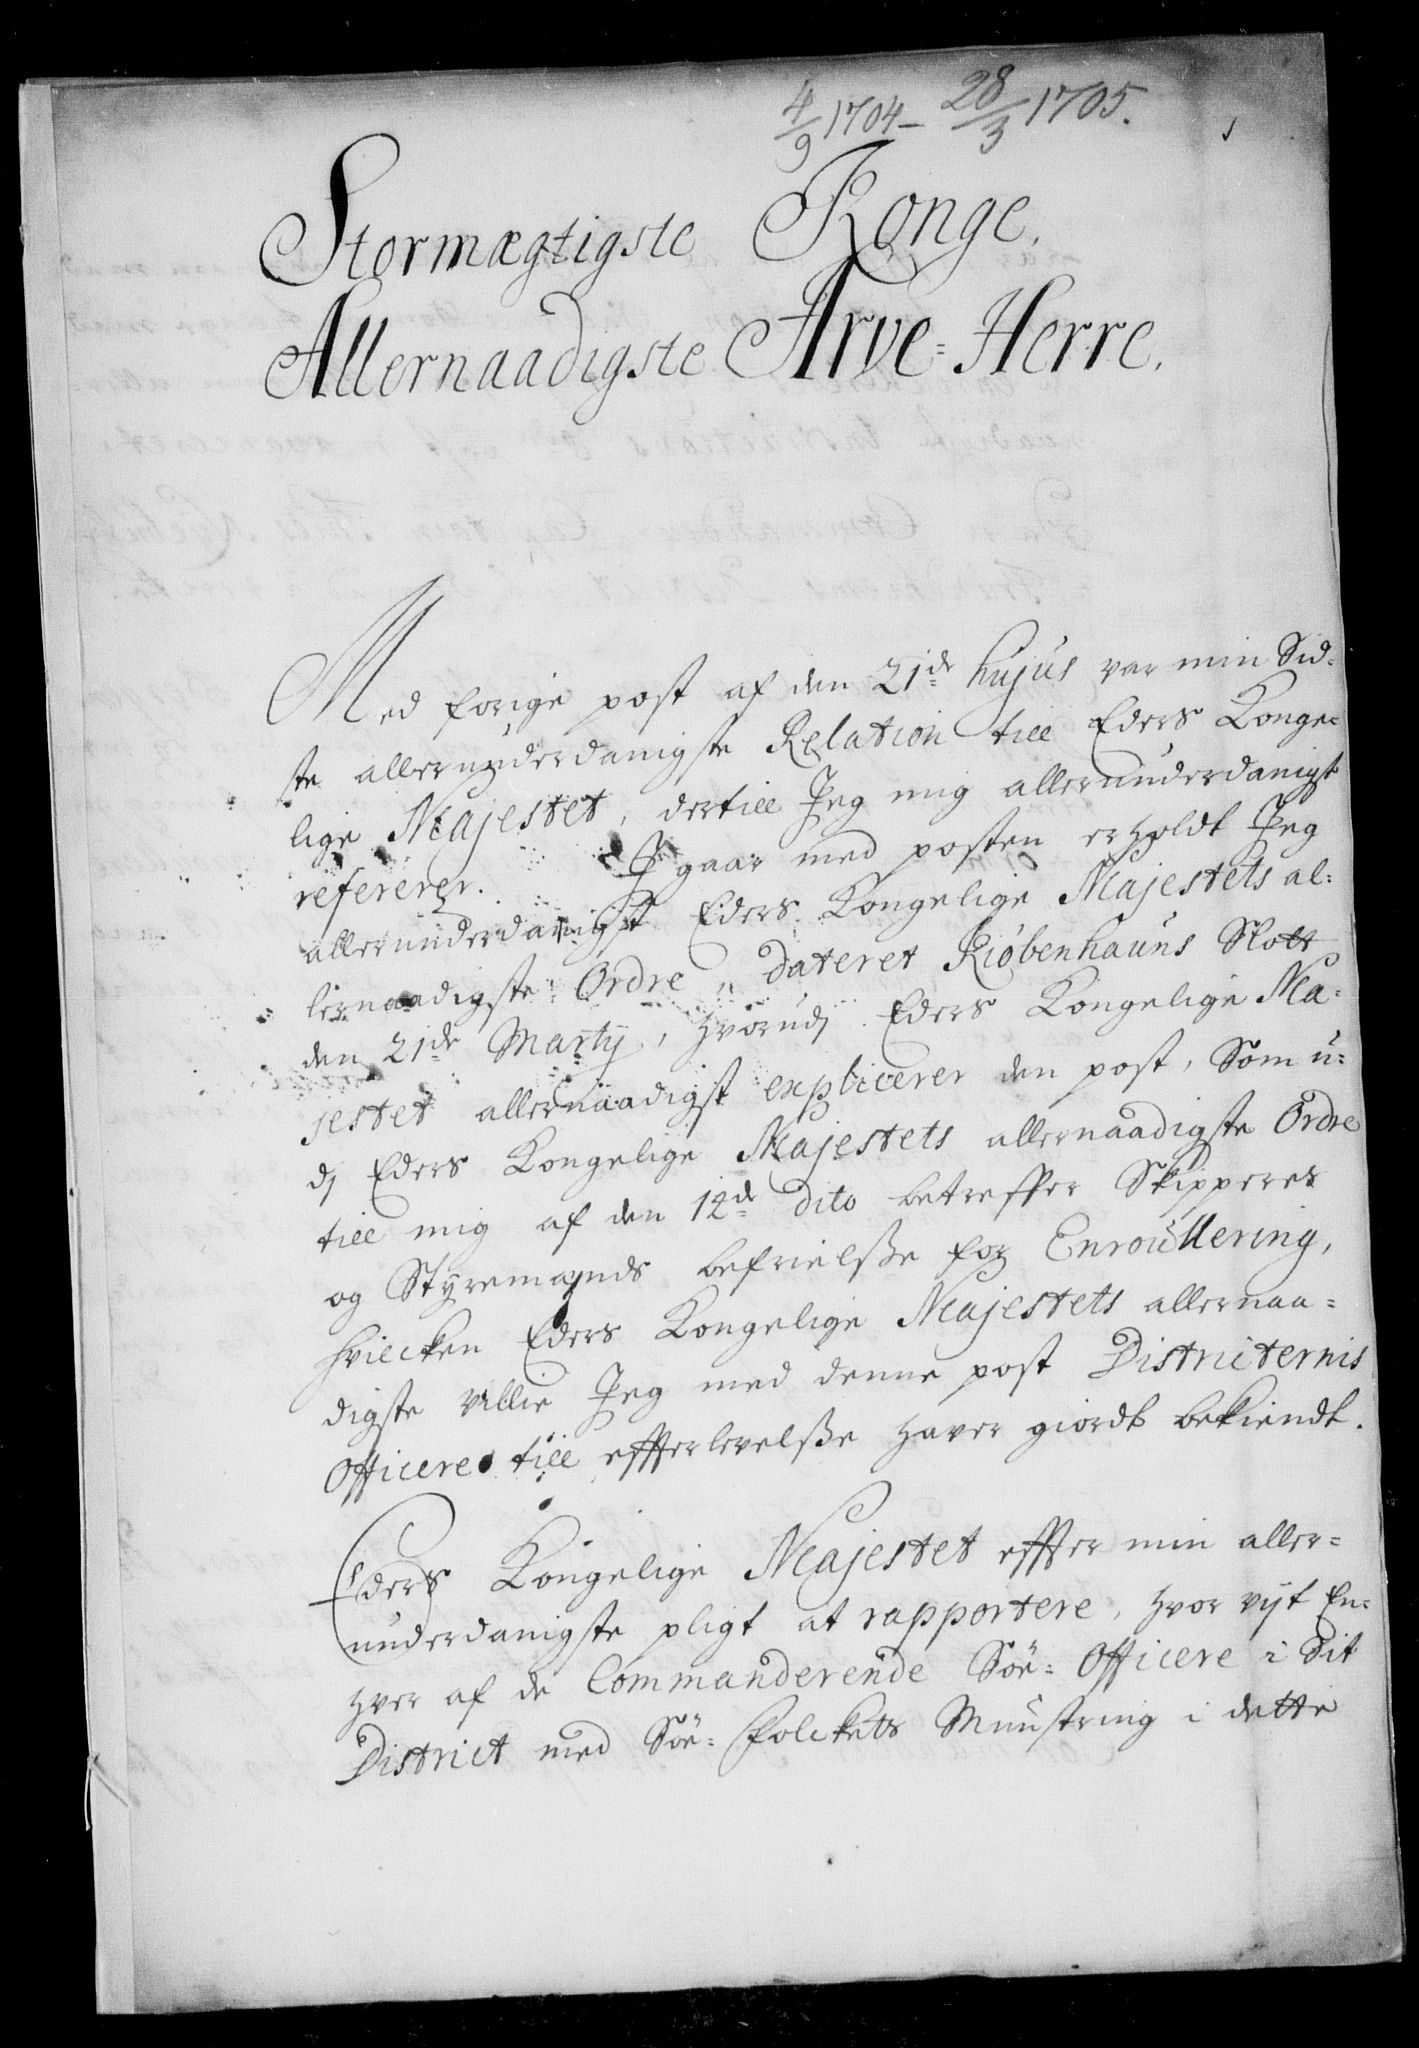 4/9 1704 – 28/3 1705.
Stormægtigste Konge,
Allernaadigste Arve-Herre.
Med forige post af den 21de hujus var min Sid-
ste allerunderdanigste Relation till Eders Konge-
lige Majestet, dertill Jeg mig allerunderdanigst
refererer. I gaar med posten erholdt Jeg
allerunderdanigst Eders Kongelige Majestets al-
lernaadigste Ordre, dateret Kiøbenhauns Slott
den 21de Martij, hvorudj Eders Kongelige Ma-
jestet allernaadigst explicerer den post, Som u-
dj Eders Kongelige Majestets allernaadigste Ordre
till mig af den 14de dito betreffer Skipperes
og Styremænds befrielsße for Enroullering,
hvilcken Eders Kongelige Majestets allernaa-
digste Villie Jeg med denne post Districternis
Officere till effterlevelsße haver giordt bekiendt.
Eders Kongelige Majestet effter min aller-
underdanigste pligt at rapportere, hvor vijt En-
hver af de Commanderende Söe-Officere i Sit
District med Söe-Folckets Munstring i dette